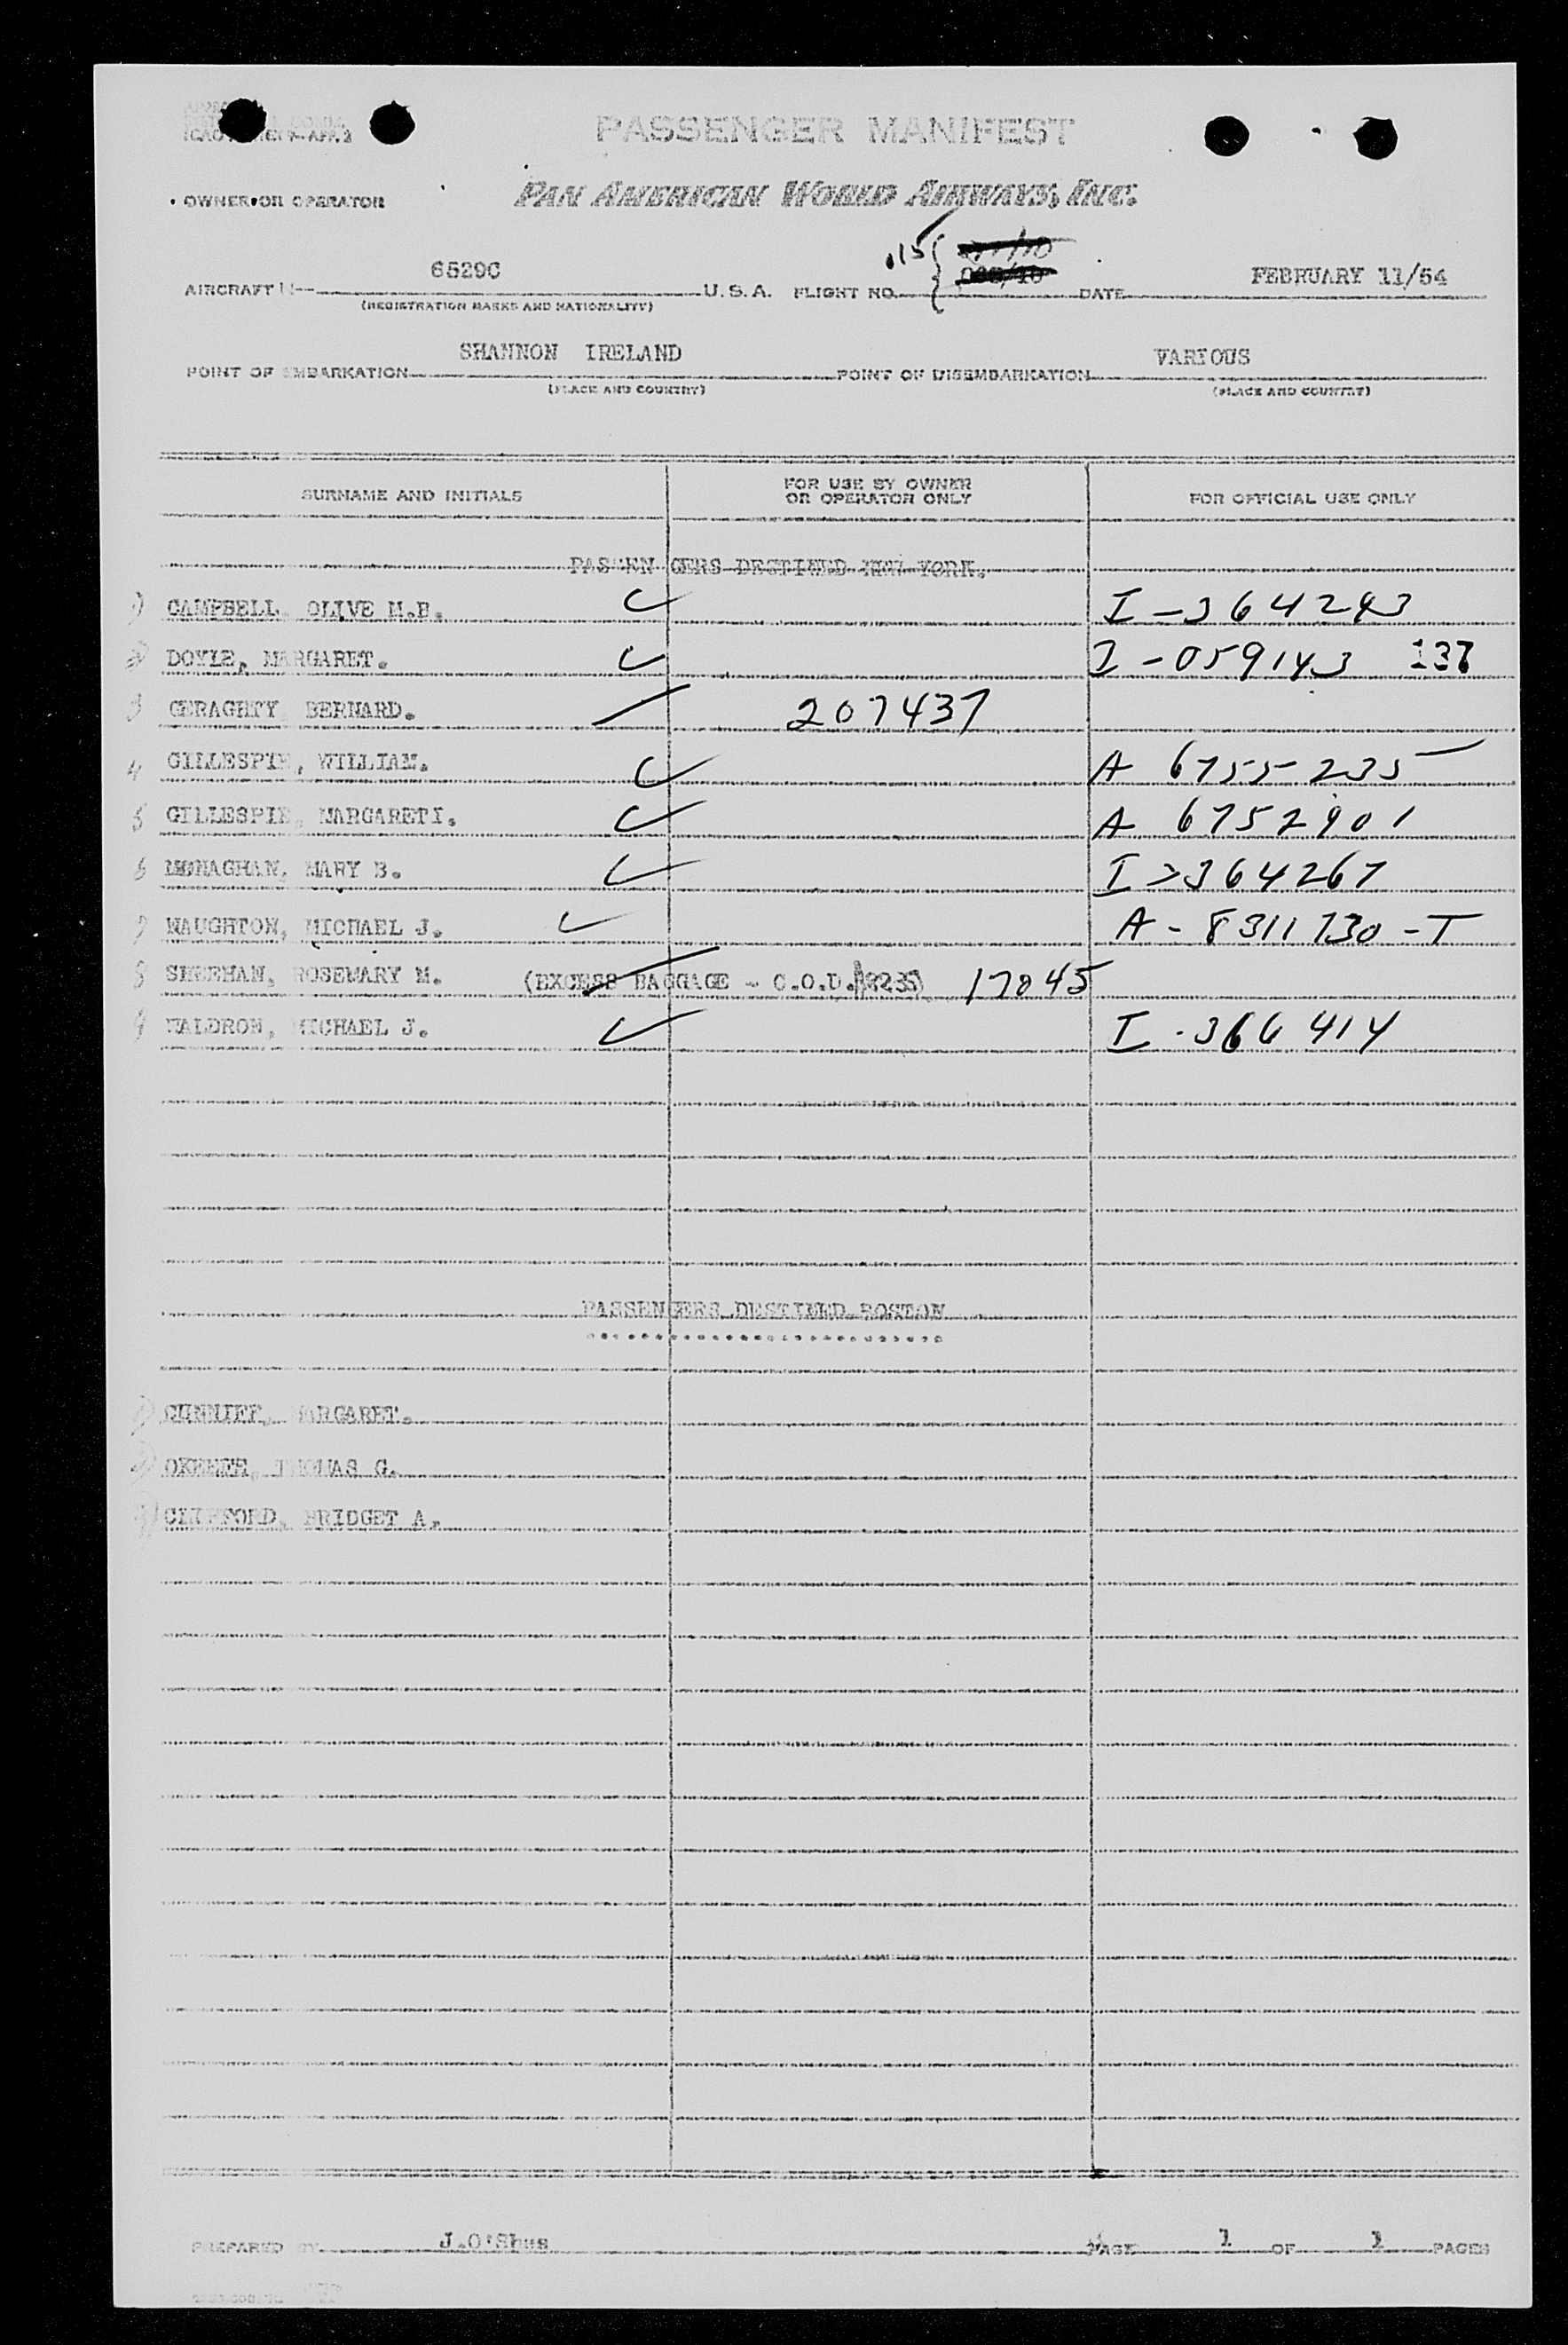 PASSENGER MANIFEST
OWNER OR OPERATOR PAN AMERICAN WORLD AIRWAYS, INC.
115
AIRCRAFT N-- 6529C U.S.A. FLIGHT NO. DATE FEBRUARY 11/54
(REGISTRATION MARKS AND NATIONALITY)
POINT OF EMBARKATION SHANNON IRELAND POINT OF DISEMBARKATION VARIOUS
(PLACE AND COUNTRY) (PLACE AND COUNTRY)
SURNAME AND INITIALS FOR USE BY OWNER OR OPERATOR ONLY FOR OFFICIAL USE ONLY
PASSENGERS DESTINED NEW YORK.
1) CAMPBELL, OLIVE M.B. I-364243
2) DOYLE, MARGARET. I-059143 137
3 GERAGHTY, BERNARD. 207437
4 GILLESPIE, WILLIAM. A 6755235
5 GILLESPIE, MARGARET I. A 6752901
6 MONAGHAN, MARY B. I-364267
7 NAUGHTON, MICHAEL J. A-8311730-T
8 SHEEHAN, ROSEMARY M. (EXCESS BAGGAGE - C.O.D. 17045
9 WALDRON, MICHAEL J. I-366414
PASSENGERS DESTINED BOSTON
CUNNIFF, MARGARET.
OKEEFE, THOMAS G.
CLIFFORD, BRIDGET A.
PREPARED BY J.O'Shea PAGE 1 OF 1 PAGES